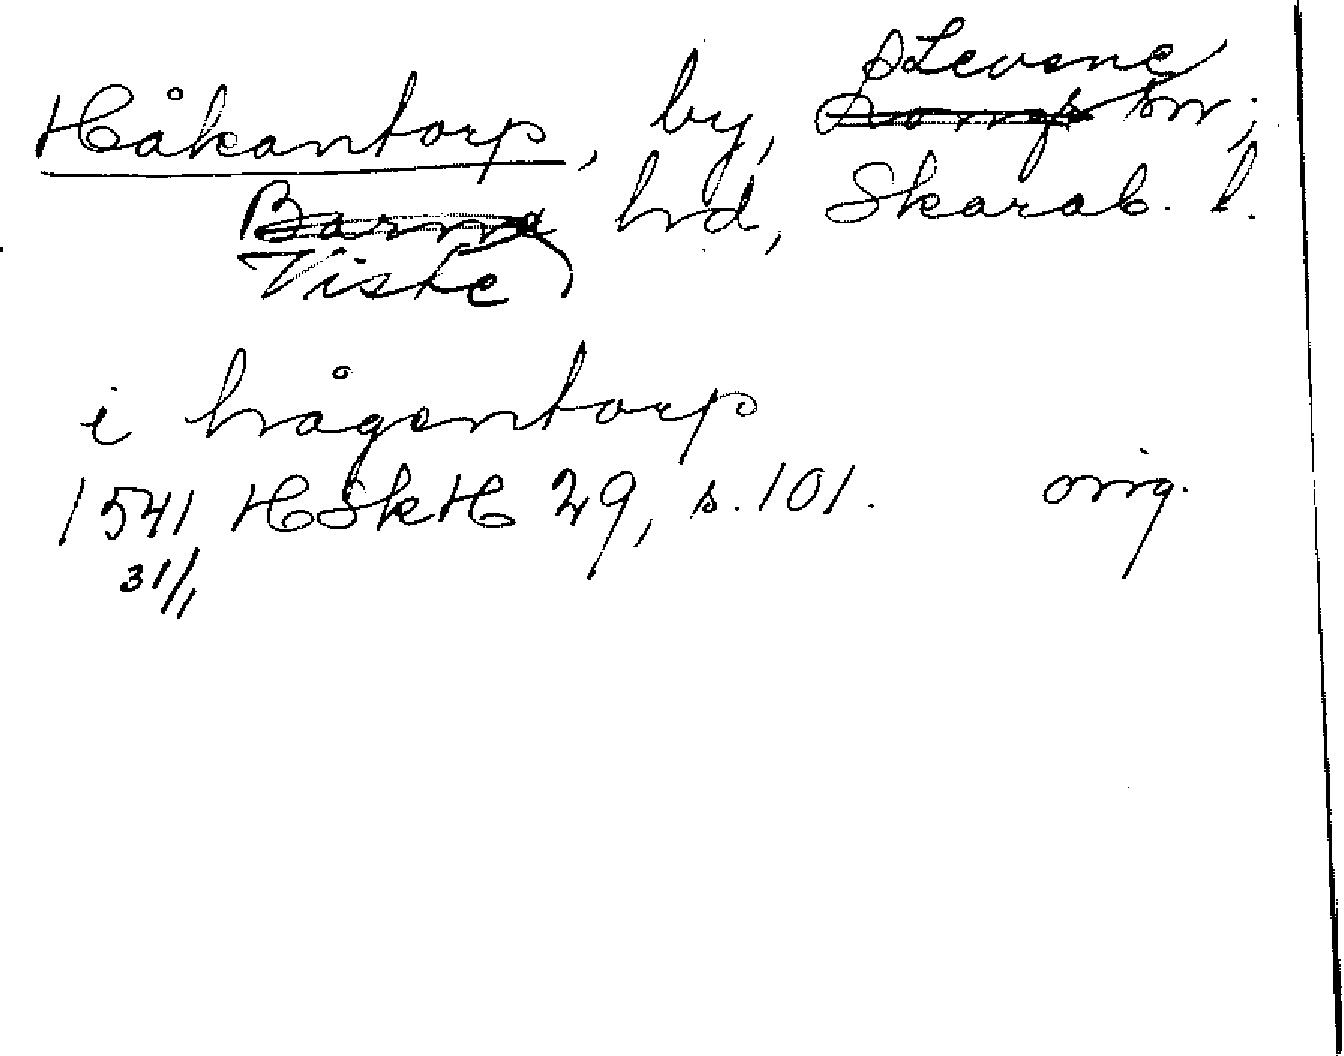 SLevene
Håkantorp, by, sn;
Barne hd, Skarab. l.
Viste
i hågentorp
1541 HSkH 29, s. 101. orig.
31/1